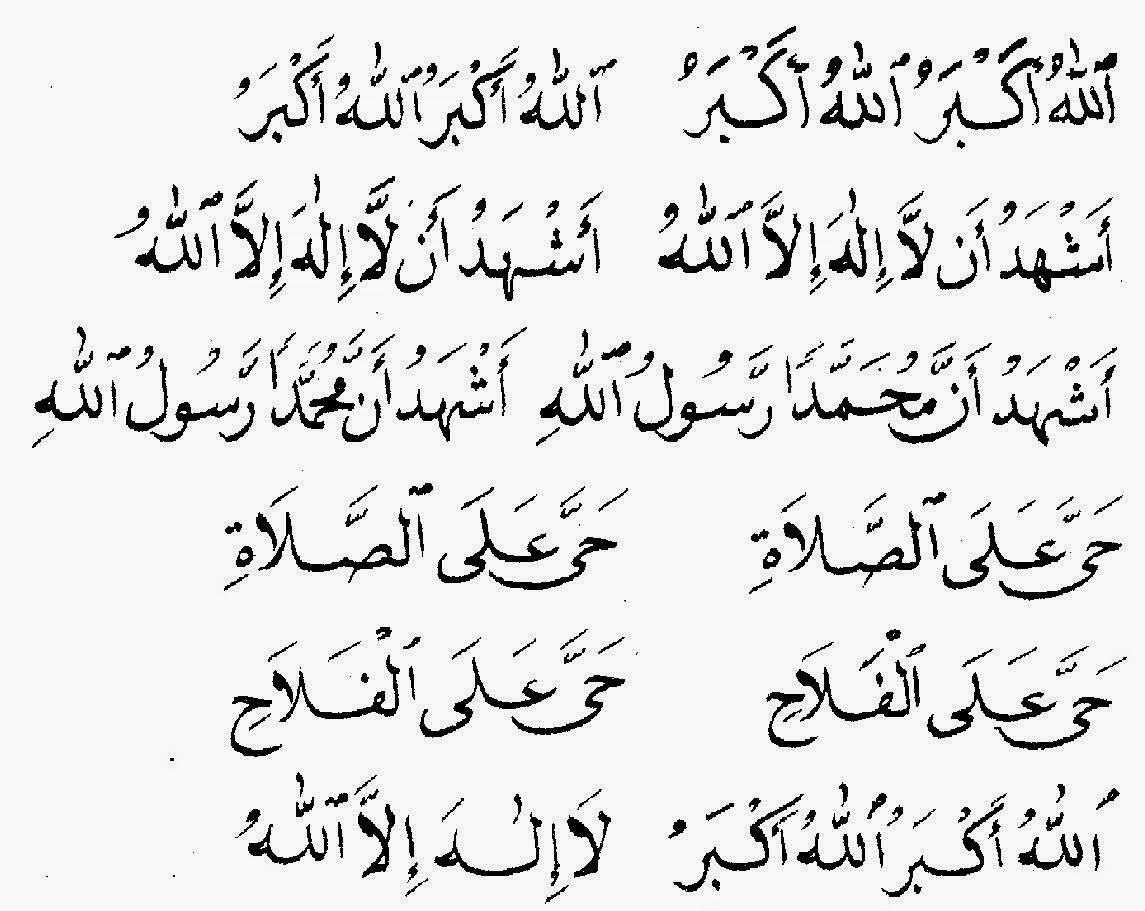 ٱللَّٰهُ أَكْبَرُ ٱللَّٰهُ أَكْبَرُ ٱللَّٰهُ أَكْبَرُ ٱللَّٰهُ أَكْبَرُ
أَشْهَدُ أَن لَّا إِلَٰهَ إِلَّا ٱللَّٰهُ أَشْهَدُ أَن لَّا إِلَٰهَ إِلَّا ٱللَّٰهُ
أَشْهَدُ أَنَّ مُحَمَّدًا رَّسُولُ ٱللَّٰهِ أَشْهَدُ أَنَّ مُحَمَّدًا رَّسُولُ ٱللَّٰهِ
حَىَّ عَلَى ٱلصَّلَاةِ حَىَّ عَلَى ٱلصَّلَاةِ
حَىَّ عَلَى ٱلْفَلَاحِ حَىَّ عَلَى ٱلْفَلَاحِ
ٱللَّٰهُ أَكْبَرُ ٱللَّٰهُ أَكْبَرُ لَا إِلَٰهَ إِلَّا ٱللَّٰهُ